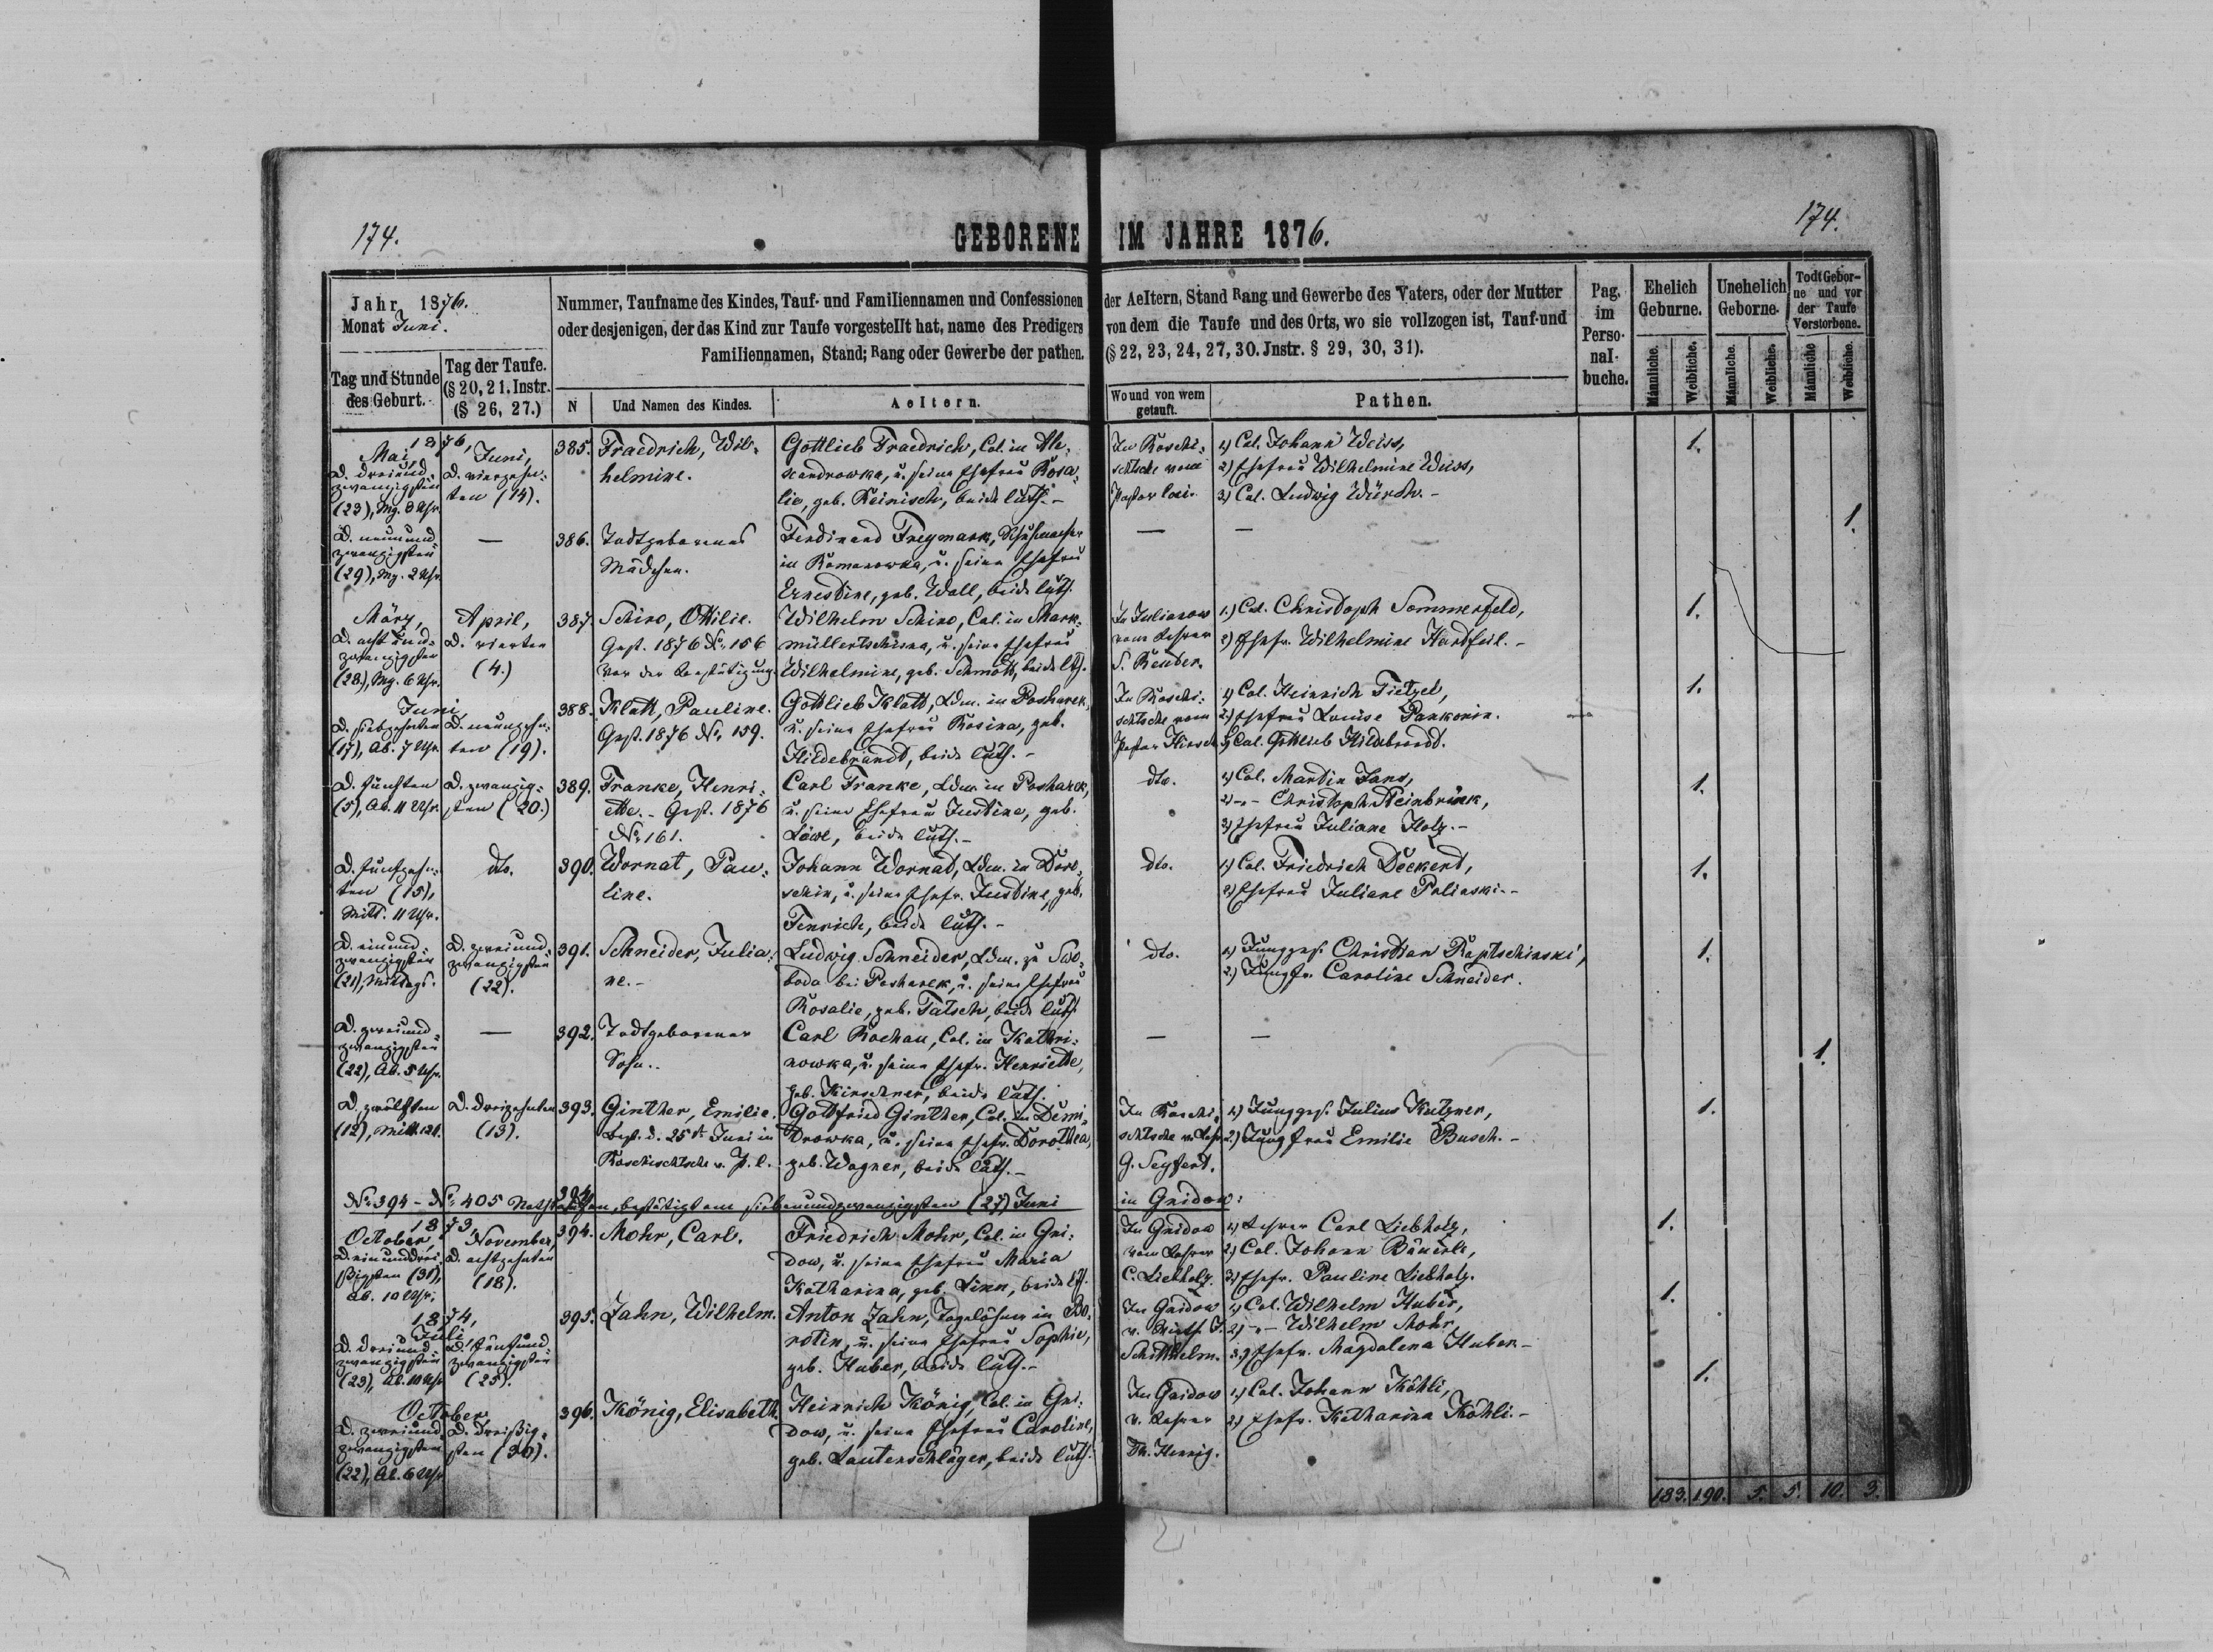 174.
174.
GEBORENE IM JAHRE 1876.
Jahr 1876.
Monat Juni.
Tag und Stunde
des Geburt.
Tag der Taufe.
(§ 20, 21. Instr.
(§ 26, 27.)
Nummer, Taufname des Kindes, Tauf- und Familiennamen und Confessionen der Aeltern, Stand Rang und Gewerbe des Vaters, oder der Mutter
oder desjenigen, der das Kind zur Taufe vorgestellt hat, name des Predigers von dem die Taufe und des Orts, wo sie vollzogen ist, Tauf-und
Familiennamen, Stand; Rang oder Gewerbe der pathen. (§ 22, 23, 24, 27, 30. Jnstr. § 29, 30, 31).
N
Und Namen des Kindes.
Aeltern.
Wo und von wem
getauft.
Pathen.
Pag.
im
Perso-
nal-
buche.
Ehelich
Geburne.
Unehelich
Geborne.
Todt Gebor-
ne und vor
der Taufe
Verstorbene.
Männliche.
Weibliche.
Männliche.
Weibliche.
Männliche
Weibliche.
1876,
Mai,
D. dreiund-
zwanzigsten
(23), Mg. 8 Uhr.
Juni,
D. vierzehn-
ten (14).
385.
Fraedrich, Wil-
helmine.
Gottlieb Fraedrich, Col. in Ale-
xandrowka, u. seine Ehefrau Rosa-
lie, geb. Reinisch, beide luth. -
In Roschi-
schtsche vom
Pastor loci.
1.) Col. Johann Weiss,
2.) Ehefrau Wilhelmine Weiss,
3.) Col. Ludwig Würth. -
1.
D. neunund-
zwanzigsten
(29), Mg. 2 Uhr.
—
386.
Todtgeborenes
Mädchen.
Ferdinand Freymark, Schuhmacher
in Romanowka, u. seine Ehefrau
Ernestine, geb. Wall, beide luth.
—
—
1.
März,
D. achtund-
zwanzigsten
(28.), Mg. 6 Uhr.
April,
D. vierten
(4.)
387.
Schiro, Ottilie.
Gest. 1876 No. 156
vor der Bestätigung.
Wilhelm Schiro, Col. in Mark-
u. seine Ehefrau
Wilhelmine, geb. Schmidt, beide lth.
In Julianow
vom Lehrer
S. Reuber.
1.) Col. Christoph Sommerfeld,
2) Ehefr. Wilhelmine Hardfeil. -
1.
Juni
D. siebzehnten
(17), Ab. 7 Uhr.
D. neunzehn-
ten (19).
388.
Klatt, Pauline.
Gest. 1876 No. 159.
Gottlieb Klatt, Ldm. in Posharek,
u. seine Ehefrau Rosina, geb.
Hildebrandt, beide luth. -
In Roschi-
schtsche vom
Pastor
1.) Col. Heinrich Tietzel,
2.) Ehefrau Louise Pankonin.
3.) Col. Gottlieb Hildebrandt.
1.
D. fünften
(5), Ab. 11 Uhr.
D. zwanzig-
sten (20.)
389.
Franke, Henri-
ette. - Gest. 1876
No. 161.
Carl Franke, Ldm. in Posharek,
u. seine Ehefrau Justine, geb.
Löwe, beide luth. -
dto.
1.) Col. Martin Jans,
2.) -„- Christoph Steinbrink,
3.) Ehefrau Juliane Holz. -
1.
D. fünfzehn-
ten (15),
Mitt. 11 Uhr.
dto.
390.
Wornat, Pau-
line.
Johann Wornat, Ldm. in Doro-
schin, u. seine Ehefr. Justine, geb.
beide luth. -
dto.
1.) Col. Friedrich Deckert,
2.) Ehefrau Juliane Polinski. -
1.
D. einund-
zwanzigsten
(21), Mittags.
D. zweiund-
zwanzigsten
(22).
391.
Schneider, Julia-
ne. -
Ludwig Schneider, Ldm. zu Swo-
boda bei Posharek, u. seine Ehefrau
Rosalie, geb. Tatsch, beide luth.
dto.
1.) Junggs. Christian Raptschinski,
2.) Jungfr. Caroline Schneider.
1.
D. zweiund-
zwanzigsten
(22), Ab. 5 Uhr.
—
392.
Todtgeborener
Sohn. -
Carl Rochau, Col. in Kathri-
nowka, u. seine Ehefr. Henriette,
geb. Kirschner, beide luth.
—
—
1.
D. zwölften
(12), Mitt. 12 U.
D. dreizehnten
(13).
393.
Ginther, Emilie.
Best. d. 25t. Juni in
Roschischtsche v. P. l.
Gottfried Ginther, Col. in Demi-
drowka, u. seine Ehefr. Dorothea,
geb. Wagner, beide luth. -
In Roschi-
schtsche v. Lehr.
G. Seyfert.
1.) Junggs. Julius Kutzner,
2.) Jungfrau Emilie Busch. -
1.
No. 394 - No. 405 Nothtaufen, bestätigt am siebenundzwanzigsten (27) Juni in Gnidow:
1873,
October,
D. einunddrei-
ßigsten (31),
Ab. 10 Uhr.
November,
D. achtzehnten
(18).
394.
Mohr, Carl.
Friedrich Mohr, Col. in Gni-
dow, u. seine Ehefrau Maria
Katharina, geb. Linn, beide lth.
In Gnidow
vom Lehrer
C. Liebholz.
1.) Lehrer Carl Liebholz,
2.) Col. Johann Bäuerle,
3.) Ehefr. Pauline Liebholz.
1.
1874,
Juli,
D. dreiund-
zwanzigsten
(23), Ab. 10 Uhr
D. fünfund-
zwanzigsten
(25).
395.
Zahn, Wilhelm.
Anton Zahn, Tagelöhner in Bo-
rotin, u. seine Ehefrau Sophie,
geb. Huber, beide luth. -
In Gnidow
Schitthelm.
1.) Col. Wilhelm Huber,
2.) -„- Wilhelm Mohr,
3.) Ehefr. Magdalena Huber. -
1.
October
D. zweiund-
zwanzigsten
(22), Ab. 6 Uhr
D. dreißig-
sten (30).
396.
König, Elisabeth.
Heinrich König, Col. in Gni-
dow, u. seine Ehefrau Caroline,
geb. Lautenschläger, beide luth.
In Gnidow
v. Lehrer
Th. Hennig.
1.) Col. Johann Köhli,
2.) Ehefr. Katharina Köhli. -
1.
183. 190. 5. 5. 10. 3.